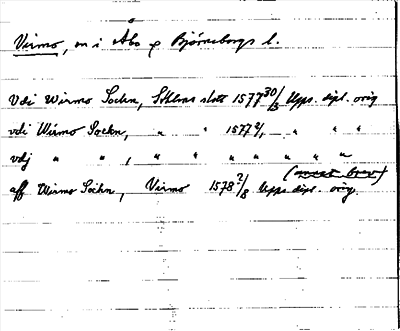 Virmo, sn i Åbo o Björneborgs l.
Vdi Wirmo Sockn, Sthlms slott 1577 30/3 Upps. dipl. orig
vdi Wirmo Sockn, " " 1577 2/, " " "
vdj " " , " " " " " " "
aff Wirmo Sockn, Virmo 1578 2/8 Upps dipl. orig.